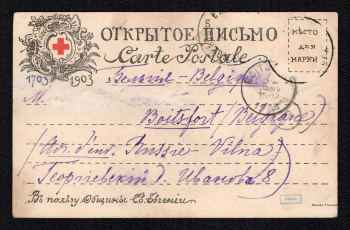 ОТКРЫТОЕ ПИСЬМО
Carte Postale
МѢСТО
ДЛЯ
МАРКИ
1703
1903
Бельгія - Belgique
М.
Boitsfort (Belgique)
Russie - Vilna
Георгіевскій д. Иванова 8
Въ пользу Общины Св. Евгеніи